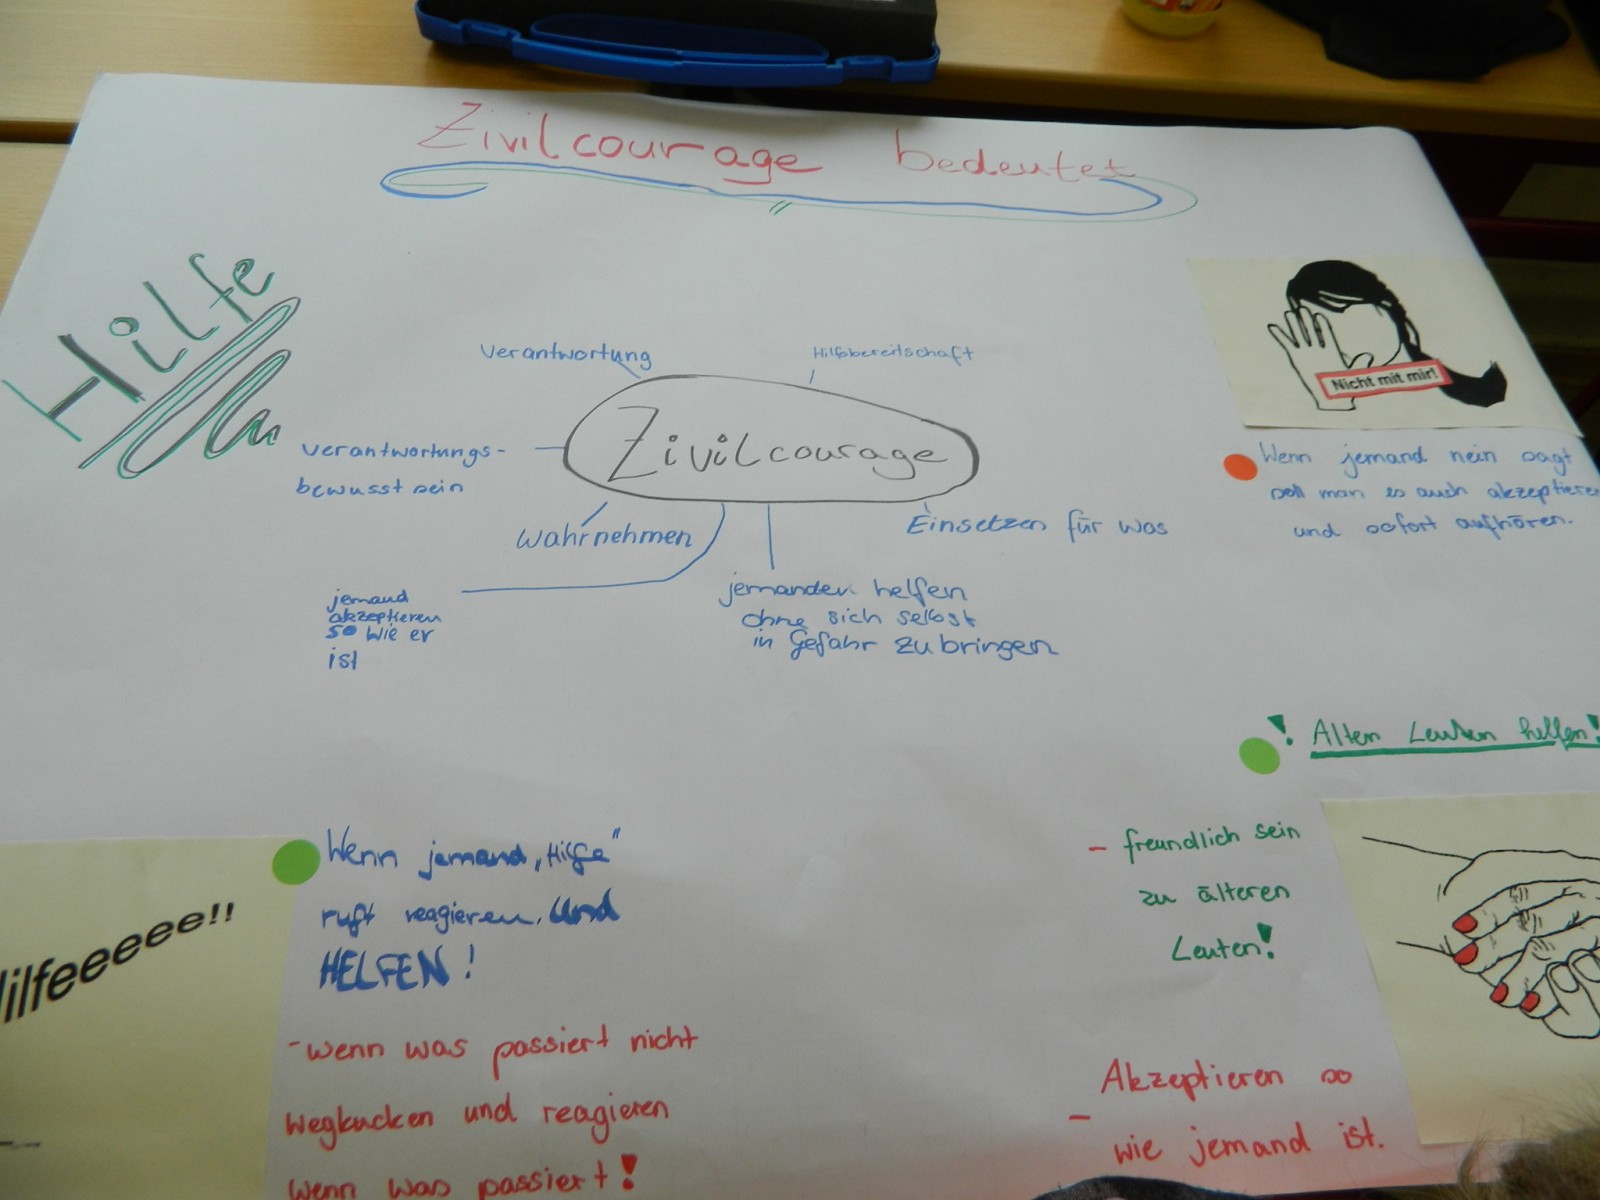 Zivilcourage bedeutet
Hilfe
Verantwortung
Hilfsbereitschaft
Zivilcourage
verantwortungs-
bewusst sein
Wahrnehmen
Einsetzen für was
jemand
akzeptieren
so wie er
ist
jemanden helfen
ohne sich selbst
in Gefahr zu bringen
Nicht mit mir!
Wenn jemand nein sagt
soll man es auch akzeptieren
und sofort aufhören.
! Alten Leuten helfen!
- freundlich sein
zu älteren
Leuten!
- Akzeptieren so
wie jemand ist.
Hilfeeeeee!!
Wenn jemand „Hilfe"
ruft reagieren. Und
HELFEN!
- wenn was passiert nicht
wegkucken und reagieren
wenn was passiert!